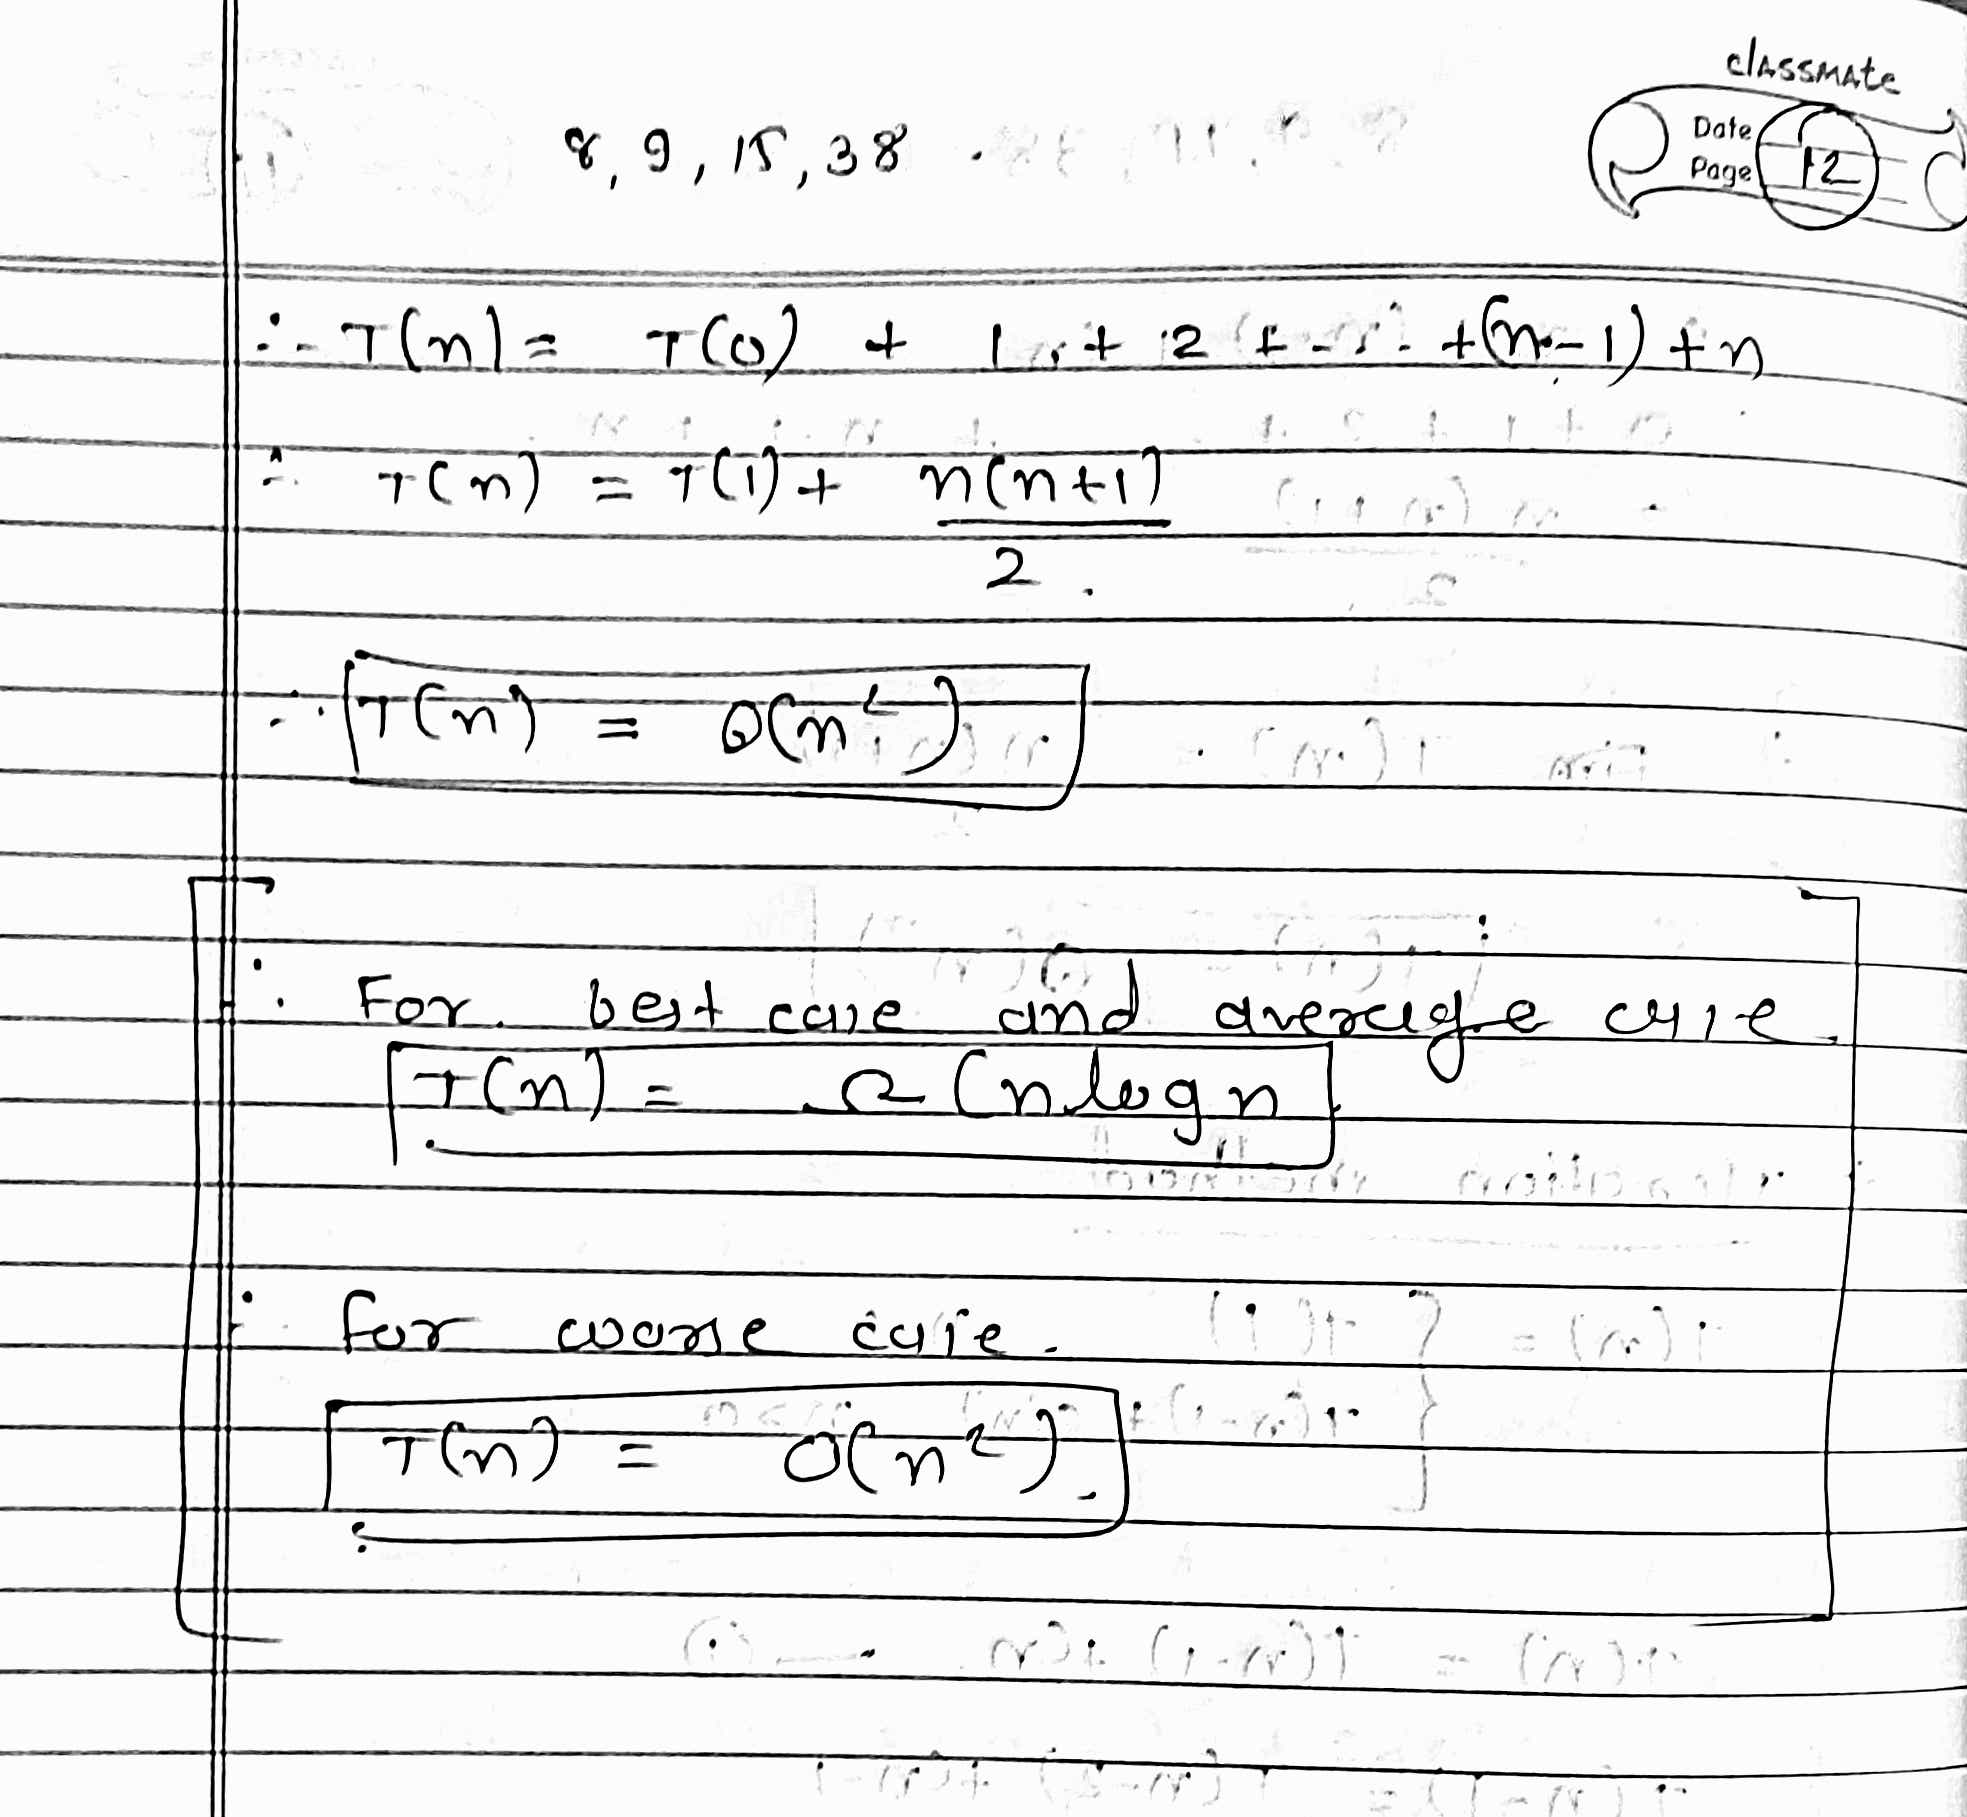 classmate
Date
Page 12
8, 9, 15, 38
∴ T(n) = T(0) + 1 + 2 + - - - +(n-1) +n
∴ T(n) = T(1) + n(n+1)
2
∴ T(n) = O(n²)
∴ For best case and average case
T(n) = Ω (n log n
∴ for worse case
T(n) = O(n²)